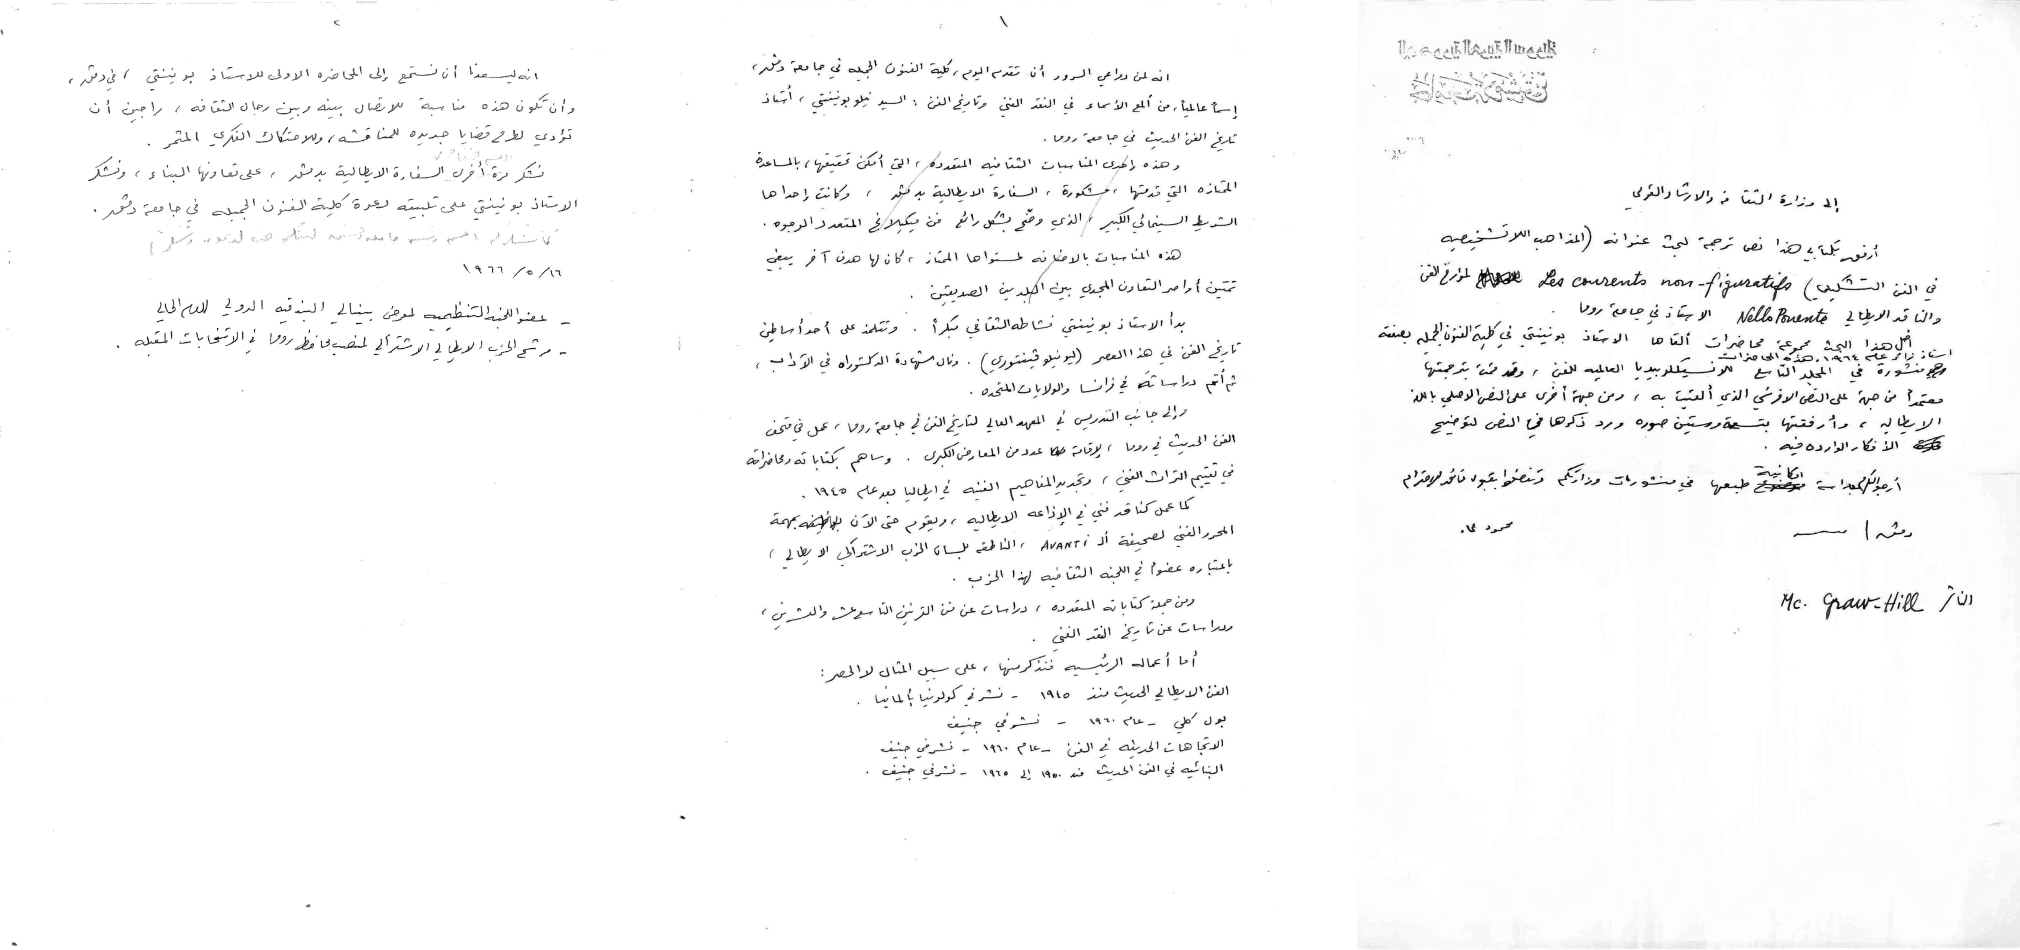 إلى وزارة الثقافة والارشاد القومي
أرفق بكتابي هذا نص ترجمة لبحث عنوانه (المذاهب اللا تشخيصيه
في الفن التشكيلي) Les courents non-figuratifs لمؤرخ الفن
والناقد الايطالي Nello Ponente الاستاذ في جامعة روما .
أصل هذا البحث مجموعة محاضرات ألقاها الاستاذ بونينتي في كلية الفنون الجميله بصفته
استاذ زائر عام ١٩٦٤ . هذه المحاضرات
منشورة في المجلد التاسع للانسيكلوبيديا العالميه للفن ، وقد قمت بترجمتها
معتمداً من جهة على النص الافرنسي الذي ألقيت به ، ومن جهة أخرى على النص الاصلي باللغة
الايطاليه ، وأرفقتها بتسعة وستين صوره ورد ذكرها في النص لتوضيح
الأفكار الوارده فيه .
أرجو دراسة امكانية طبعها في منشورات وزارتكم وتفضلوا بقبول فائق الاحترام
دمشق / محمود حماد
الناشر Mc. Graw-Hill
١
انه لمن دواعي السرور أن تقدم اليوم ، كلية الفنون الجميله في جامعة دمشق ،
إسماً عالمياً ، من ألمع الأسماء في النقد الفني وتاريخ الفن : السيد نيلو بونينتي ، أستاذ
تاريخ الفن الحديث في جامعة روما .
وهذه إحدى المناسبات الثقافيه المتعدده ، التي أمكن تحقيقها ، بالمساعدة
الممتازه التي قدمتها ، مشكورة ، السفارة الايطالية بدمشق ، وكانت إحداها
الشريط السينمائي الكبير ، الذي وضّح بشكل رائع فن ميكيلانج المتعدد الوجوه .
هذه المناسبات بالاضافه لمستواها الممتاز ، كان لها هدف آخر يبغي
تمتين أواصر التعاون المجدي بين البلدين الصديقين .
بدأ الاستاذ بونينتي نشاطه الثقافي مبكراً . وتتلمذ على أحد أساطين
تاريخ الفن في هذا العصر (ليونيلو فينتوري) . ونال شهادة الدكتوراه في الآداب ،
ثم أتم دراساته في فرنسا والولايات المتحده .
وإلى جانب التدريس في المعهد العالي لتاريخ الفن في جامعة روما ، عمل في متحف
الفن الحديث في روما ، لإقامة عدد من المعارض الكبرى . وساهم بكتاباته ومحاضراته
في تقييم التراث الفني ، وتجديد المفاهيم الفنيه في ايطاليا بعد عام ١٩٤٥ .
كما عمل كناقد فني في الإذاعه الايطاليه ، ويقوم حتى الآن بمهمة
المحرر الفني لصحيفة الـ AVANTI ، الناطقه بلسان الحزب الاشتراكي الايطالي ،
باعتباره عضواً في اللجنه الثقافيه لهذا الحزب .
ومن جملة كتاباته المتعدده ، دراسات عن فن القرنين التاسع عشر والعشرين ،
ودراسات عن تاريخ النقد الفني .
أما أعماله الرئيسيه فنذكر منها ، على سبيل المثال لا الحصر :
الفن الايطالي الحديث منذ ١٩٤٥ - نشر في كولونيا بألمانيا .
بول كلي - عام ١٩٦٠ - نشر في جنيف
الاتجاهات الحديثه في الفن - عام ١٩٦٠ - نشر في جنيف
البنائيه في الفن الحديث منذ ١٩٥٠ إلى ١٩٦٥ - نشر في جنيف .
٢
انه ليسعدنا أن نستمع إلى المحاضره الاولى للاستاذ بونينتي ، في دمشق ،
وأن تكون هذه مناسبة للاتصال بينه وبين رجال الثقافه ، راجين أن
تؤدي لطرح قضايا جديده للمناقشه ، وللاحتكاك الفكري المثمر .
نشكر مرة أخرى السفارة الايطالية بدمشق ، على تعاونها البناء ، ونشكر
الاستاذ بونينتي على تلبيته لدعوة كلية الفنون الجميله في جامعة دمشق .
١٩٦٦/٥/١٦
- عضو اللجنه التنظيميه لمعرض بينالي البندقيه الدولي للعام الحالي
- مرشح الحزب الايطالي الاشتراكي لمنصب محافظ روما في الانتخابات المقبله .